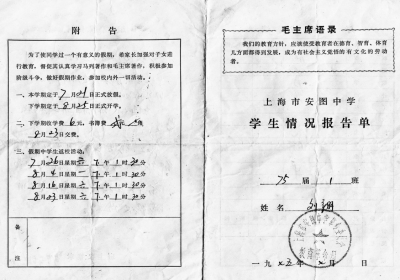 附告
为了使同学过一个有意义的假期,希家长加强对子女进
行教育,督促其认真学习马列著作和毛主席著作,积极参加
阶级斗争,做好假期作业,参加校内外一切活动。
一、本学期定于7月29日正式放假。
下学期定于8月25日正式开学。
二、下学期收学费6元,书簿费
8月23日交费。
三、假期中学生返校活动:
7月26日星期六下午1时30分
8月4日星期一下午1时30分
8月16日星期六下午1时30分
8月23日星期六下午1时30分
备注
毛主席语录
我们的教育方针,应该使受教育者在德育、智育、体育
几方面都得到发展,成为有社会主义觉悟的有文化的劳动
者。
上海市安图中学
学生情况报告单
75届1班
姓名
一九七五年7月 日